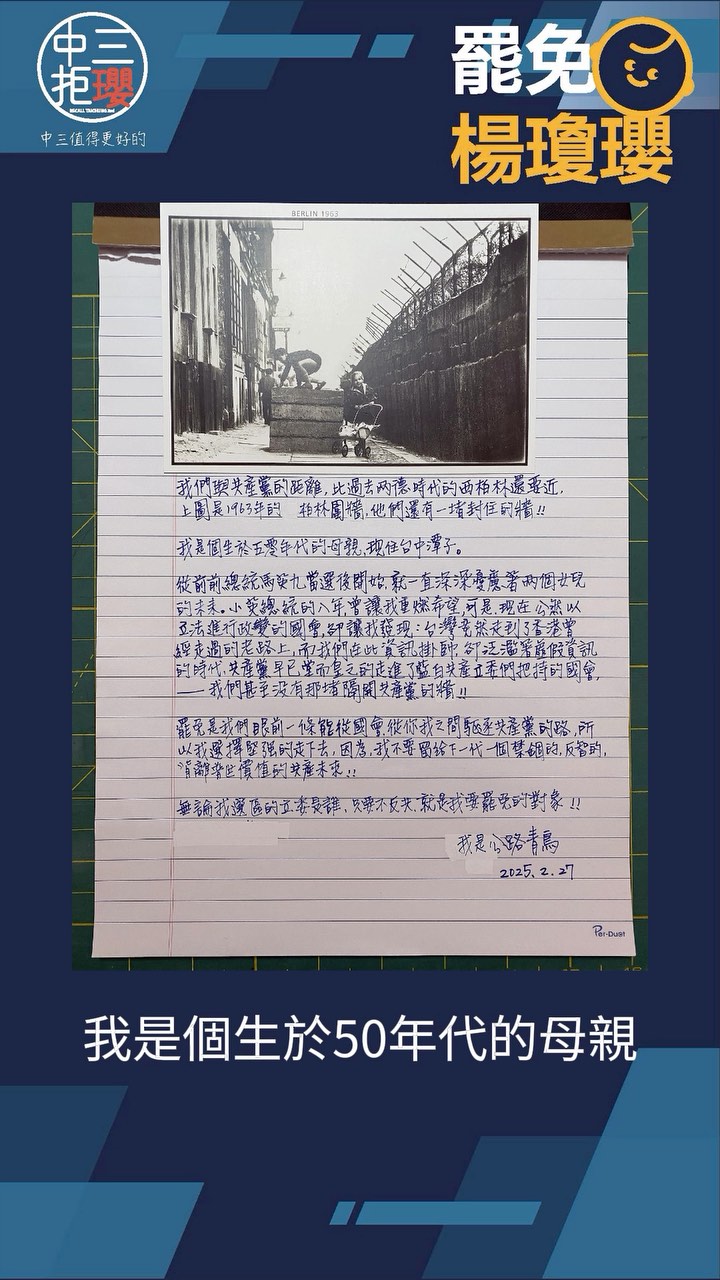 中三
拒瓔
中三值得更好的
罷免
楊瓊瓔
BERLIN 1963
我們與共產黨的距離,比過去兩德時代的西柏林還要近,
上圖是1963年的 柏林圍牆,他們還有一堵封住的牆!!
我是個生於五零年代的母親,現住台中潭子。
從前前總統馬英九當選後開始,就一直深深憂慮著兩個女兒
的未來。小英總統的八年曾讓我重燃希望,可是現在公然以
立法進行政變的國會,卻讓我發現:台灣竟然走到了香港曾
經走過的老路上,而我們在此資訊掛帥,卻泛濫著最假資訊
的時代,共產黨早已堂而皇之的走進了藍白共產立委們把持的國會,
——我們甚至沒有那堵隔開共產黨的牆!!
罷免是我們眼前一條能從國會,從你我之間驅逐共產黨的路,所
以我選擇堅強的走下去,因為,我不要留給下一代一個禁錮的,反智的,
背離普世價值的共產未來!!
無論我選區的立委是誰,只要不反共,就是我要罷免的對象!!
我是公路青鳥
2025.2.27
Per-Dust
我是個生於50年代的母親